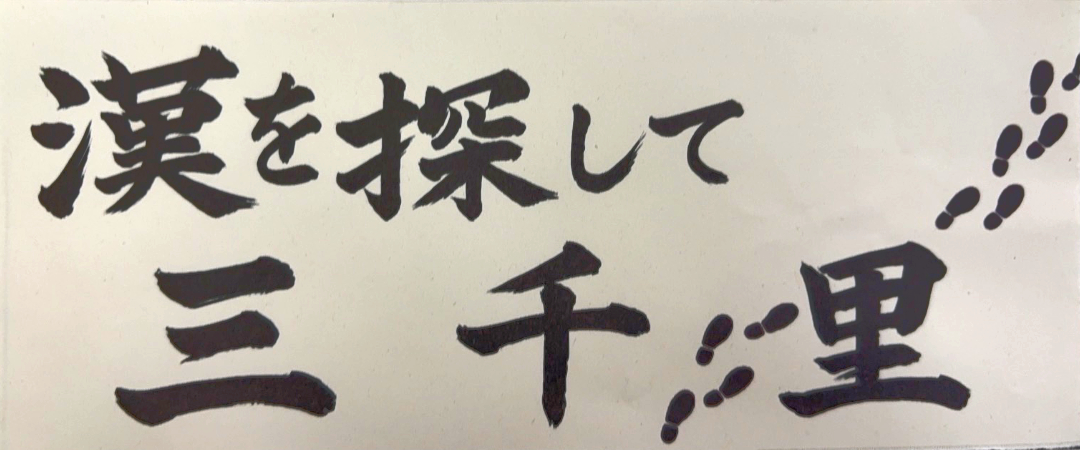 漢を探して
三千里